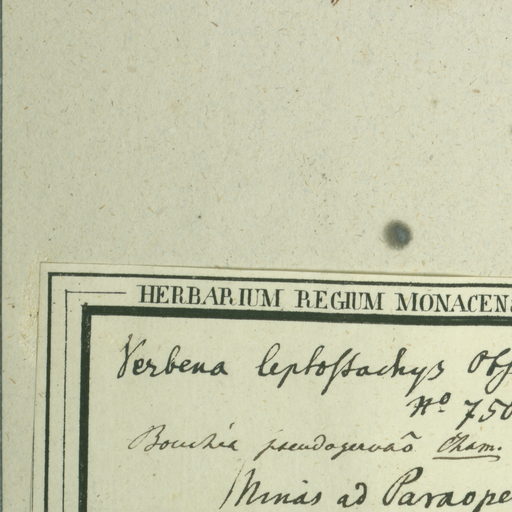 HERBARIUM REGIUM MONACENS
Verbena leptostachys Obs
No. 750
Bouchea pseudogervaõ Cham.
Minas ad Paraope